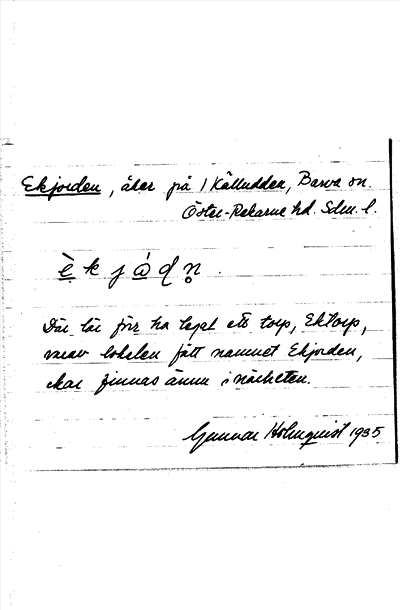 Ekjorden, åker på 1 Källudden, Barva sn.
Öster-Rekarne hd. Sdm. l.
è k j ǻ ḍ n̥.
Där lär förr ha legat ett torp, Ektorp,
varav lokalen fått namnet Ekjorden,
ekar finnas ännu i närheten.
Gunnar Holmquist 1935